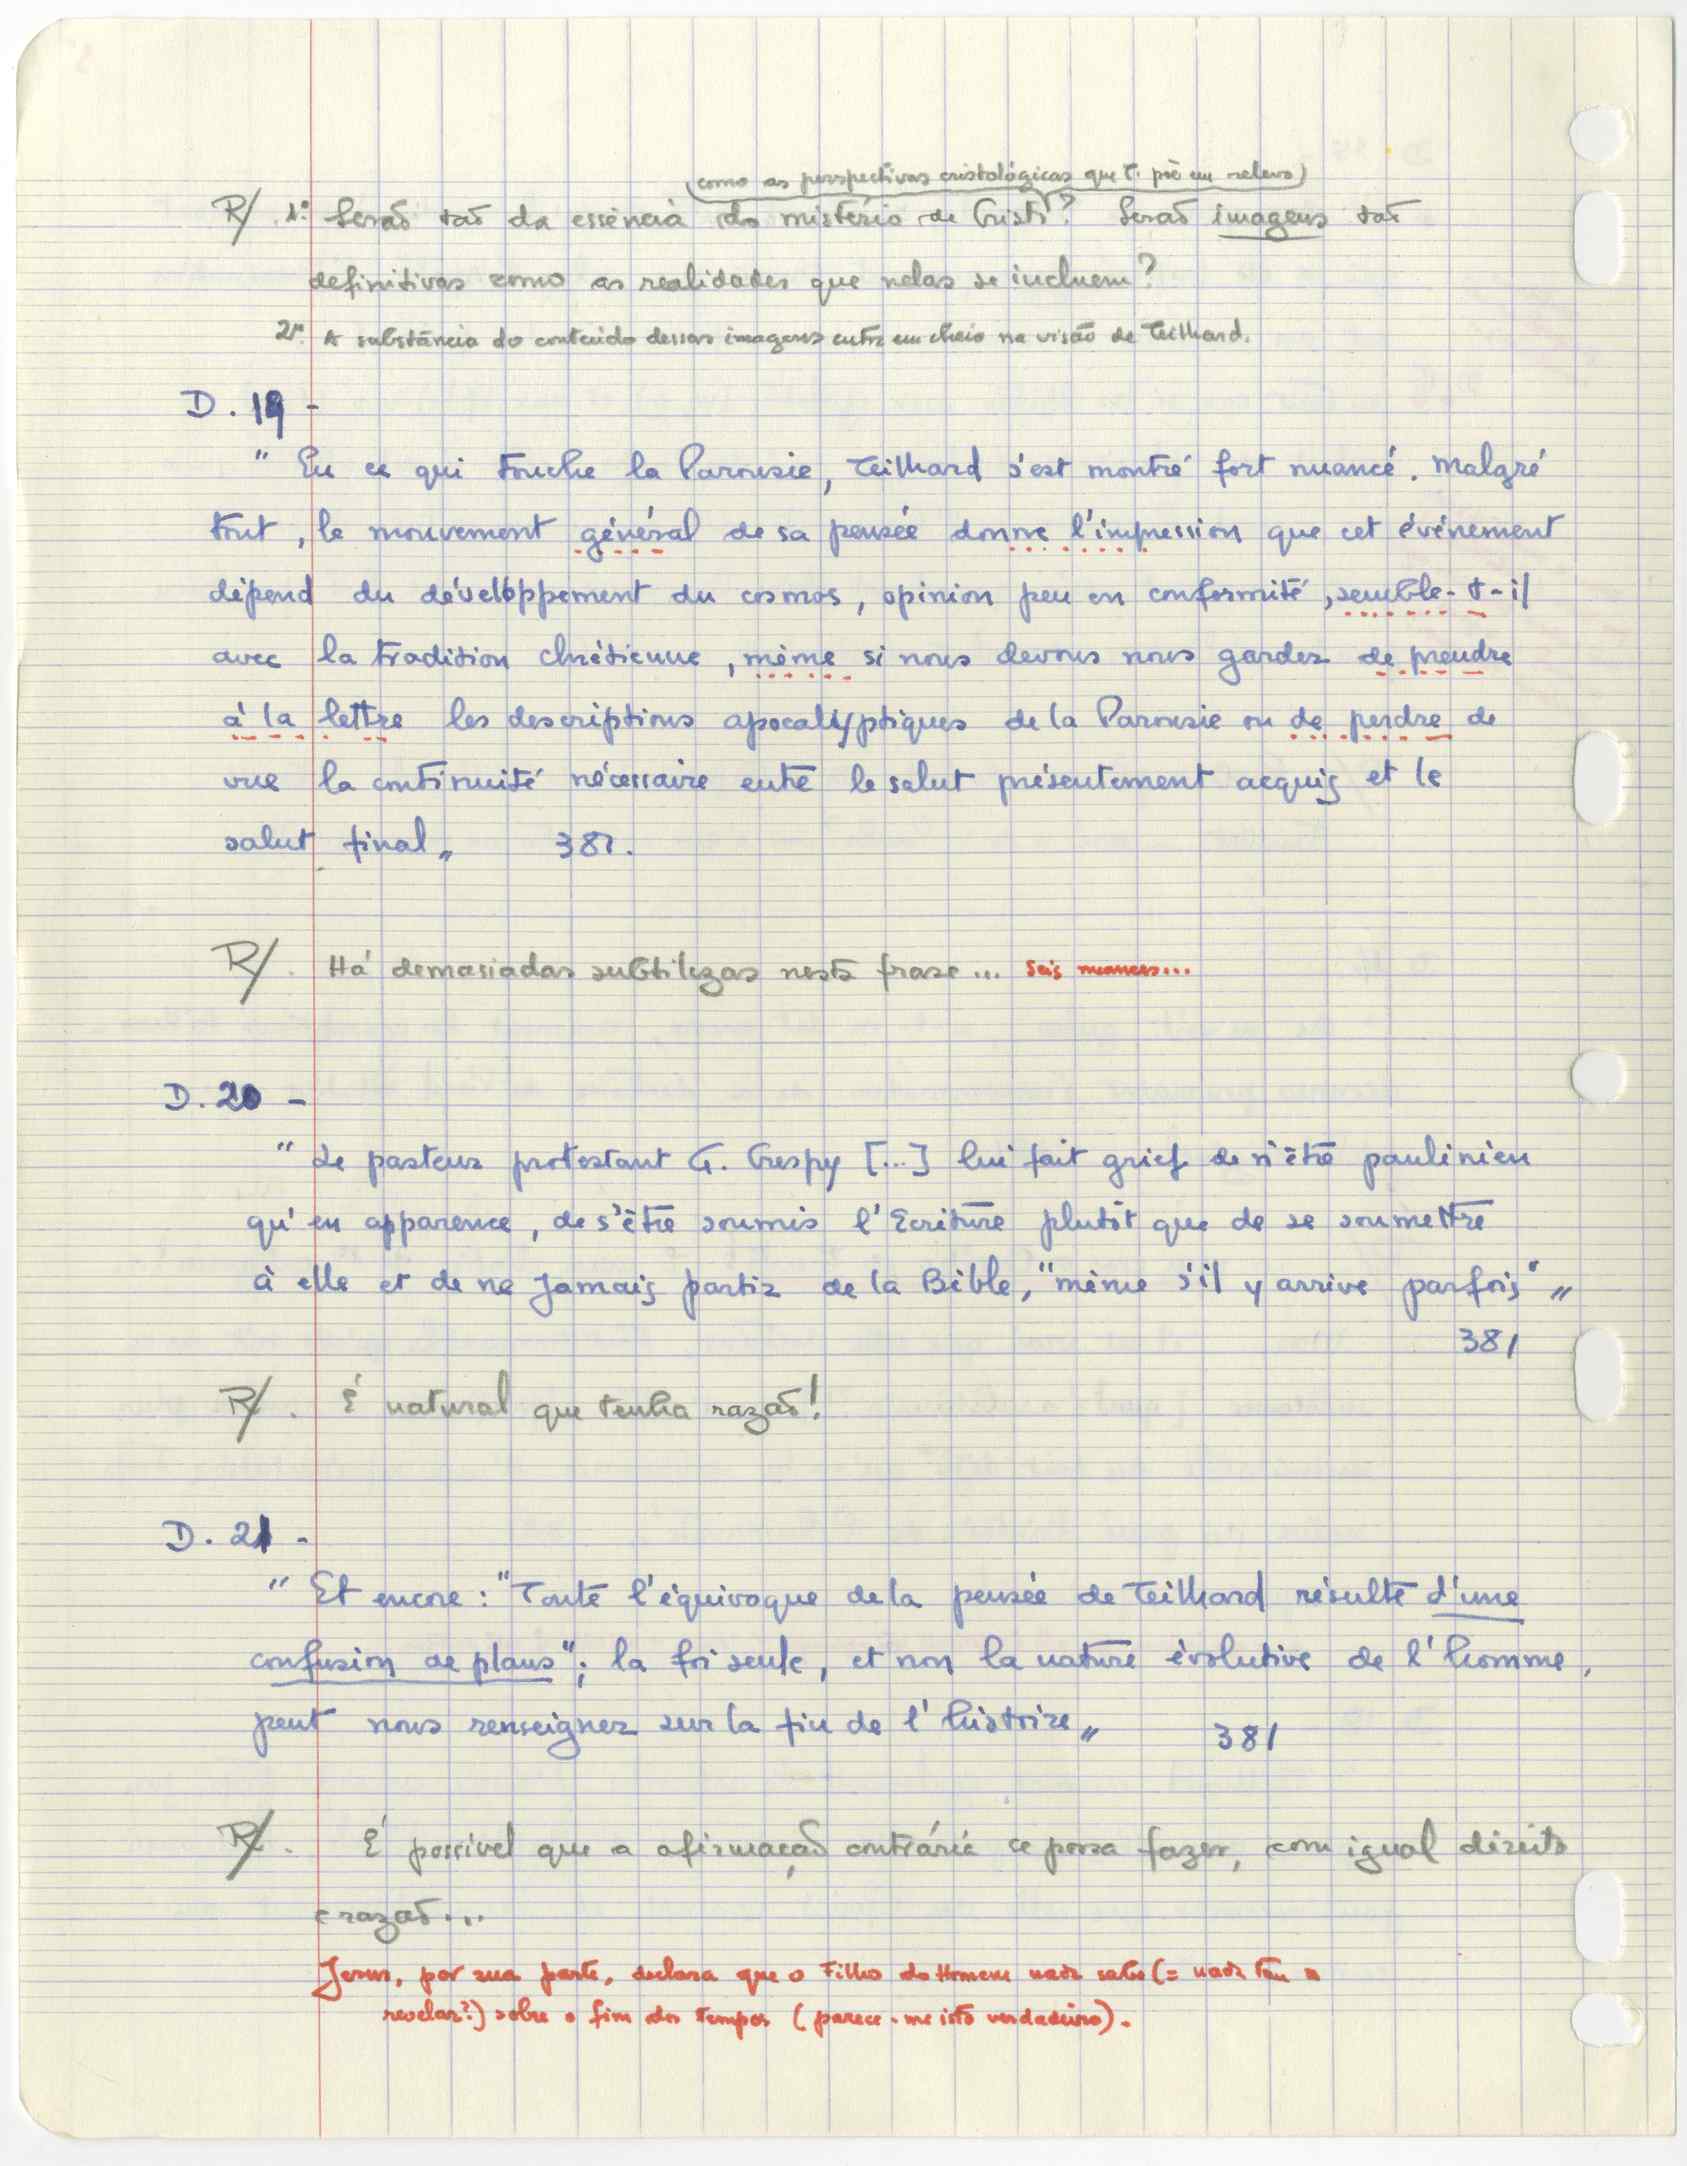 (como as perspectivas cristológicas que T. põe em relevo)
R/ 1º: Serão tão da essência do mistério de Cristo? Serão imagens tão
definitivas como as realidades que nelas se incluem?
2º. A substância do conteúdo dessas imagens entra em cheio na visão de Teilhard.
D. 19 -
" En ce qui touche la Parousie, Teilhard s'est montré fort nuancé. Malgré
tout, le mouvement général de sa pensée donne l'impression que cet événement
dépend du développement du cosmos, opinion peu en conformité, semble-t-il
avec la tradition chrétienne, même si nous devons nous garder de prendre
à la lettre les descriptions apocalyptiques de la Parousie ou de perdre de
vue la continuité nécessaire entre le salut présentement acquis et le
salut final„ 381.
R/. Há demasiadas subtilezas nesta frase... Seis nuances...
D. 20 -
" Le pasteur protestant G. Crespy [...] lui fait grief de n'être paulinien
qu'en apparence, de s'être soumis l'Ecriture plutôt que de se soumettre
à elle et de ne jamais partir de la Bible, "même s'il y arrive parfois" „
381
R/. É natural que tenha razão!
D. 21 -
" Et encore : "Toute l'équivoque de la pensée de Teilhard résulte d'une
confusion de plans"; la foi seule, et non la nature évolutive de l'homme,
peut nous renseigner sur la fin de l'histoire„ 381
R/. É possível que a afirmação contrária se possa fazer, com igual direito
e razão...
Jesus, por sua parte, declara que o Filho do Homem nada sabe (= nada tem a
revelar?) sobre o fim dos tempos (parece-me isto verdadeiro).